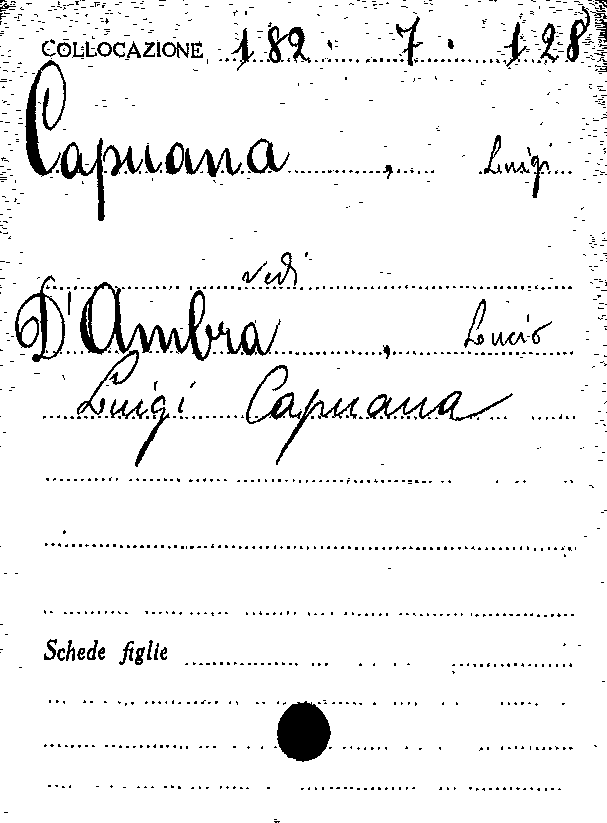 COLLOCAZIONE 182. 7. 128
Capuana, Luigi
vedi
D'Ambra, Lucio
Luigi Capuana
Schede figlie